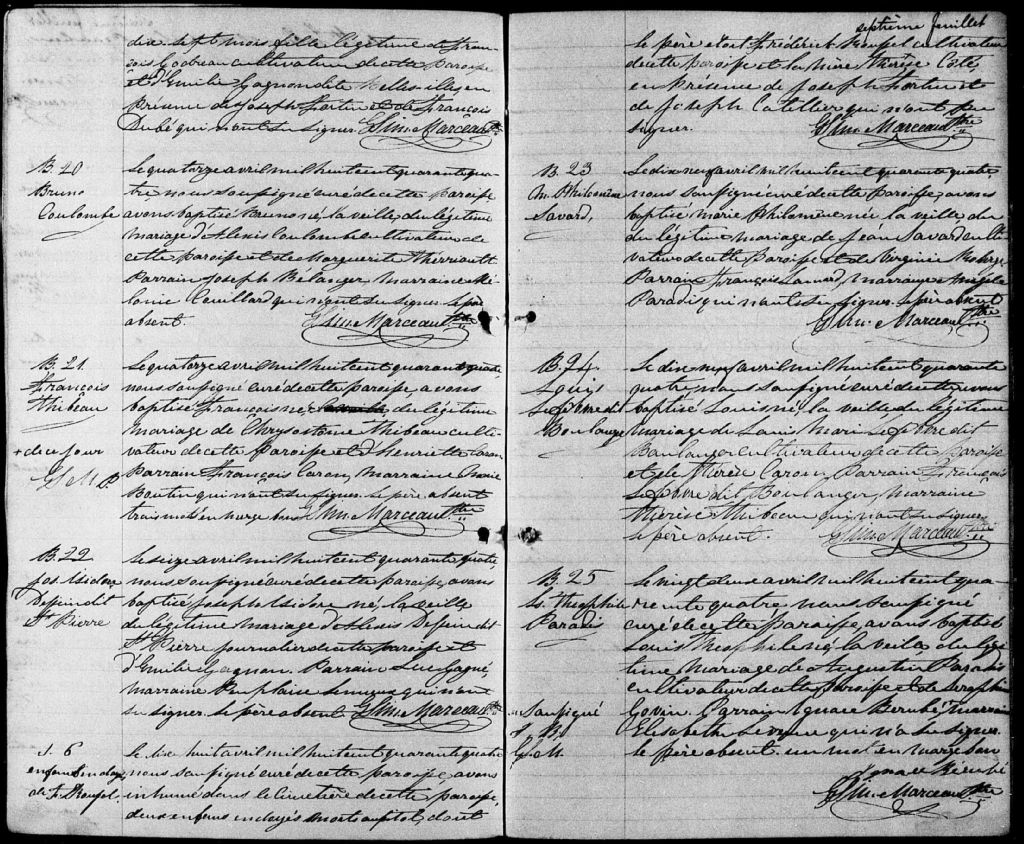 dix sept mois fille légitime de Fran-
çois Cotreau cultivateur de cette paroisse
et d'Emilie Gagnon dite Belles-iles en
Présence de Joseph Fortin et de François
Dubé qui n'ont su signer. Gl. Sim. Marceau Ptre
B. 20
Bruno
Coulombe
Le quatorze avril mil huit cent quarante qua-
tre nous soussigné curé de cette paroisse
avons baptisé Bruno né, la veille du légitime
mariage d'Alexis Coulombe cultivateur de
cette paroisse et de Marguerite Therriault
Parrain Joseph Bélanger, Marraine Mé-
lonie Couillard qui n'ont su signer le père
absent. Gl. Sim. Marceau Ptre
B. 21
François
Thibeau
+ de ce jour
G S M P
Le quatorze avril mil huit cent quarante quatre
nous soussigné curé de cette paroisse, avons
baptisé François né du légitime
mariage de Chrysostôme Thibeau culti-
vateur de cette Paroisse et d'henriette Caron
Parrain François Caron, Marraine Marie
Boutin qui n'ont su signer. Le père absent
trois mots en marge bons Gl. Sim. Marceau Ptre
B. 22
Jos. Isidore
Dessein dit
St Pierre
Le seize avril mil huit cent quarante quatre
nous soussigné curé de cette paroisse, avons
baptisé Joseph Isidore né, la veille
du légitime mariage d'Alexis Dessein dit
St Pierre journalier de cette paroisse et
d'Emilie Gagnon Parrain Luc Gagné,
marraine Lemieux qui n'ont
su signer. Le père absent Gl. Sim. Marceau Ptre
S. 6
enfans ondoyés
de F. Roussel.
Le dix huit avril mil huit cent quarante quatre
nous soussigné curé de cette paroisse, avons
inhumé dans le cimetière de cette paroisse,
deux enfans ondoyés morts aussitot, dont
septième feuillet
le père étoit Fréderick Roussel cultivateur
de cette paroisse et la mère Therèse Coté,
en Présence de Joseph Fortin et
de Joseph Catellier qui n'ont pu
signer. Gl. Sim. Marceau Ptre
B. 23
M. Philomène
Savard,
Le dix neuf avril mil huit cent quarante quatre
nous soussigné curé de cette Paroisse, avons
baptisé Marie Philomène née la veille du
du légitime mariage de Jean Savard culti-
vateur de cette Paroisse et de Virginie
Parrain François Savard, marraine Angèle
Paradis qui n'ont su signer. Le père absent
Gl. Sim. Marceau Ptre
B. 24
Louis
Lefebvre dit
Boulanger
Le dix neuf avril mil huit cent quarante
quatre, nous soussigné curé de cette avons
baptisé Louis né, la veille du légitime
mariage de Louis Marie Lefebvre dit
Boulanger cultivateur de cette paroisse
et de Therèse Caron, Parrain François
Lefebvre dit Boulanger, Marraine
Therèse Thibeau qui n'ont su signer.
le père absent. Gl. Sim. Marceau Ptre
B. 25
Ls. Theophile
Paradis
Le vingt deux avril mil huit cent qua-
rente quatre nous soussigné
curé de cette paroisse, avons baptisé
Louis Theophile né, la veille du légi-
time mariage de Augustin Paradis
cultivateur de cette paroisse et de Seraphine
Parrain Ignace Bérubé, Marraine
Elisabeth qui n'a su signer
le père absent un mot en marge bon
soussigné
Ignace Bérubé
Gl. Sim. Marceau Ptre